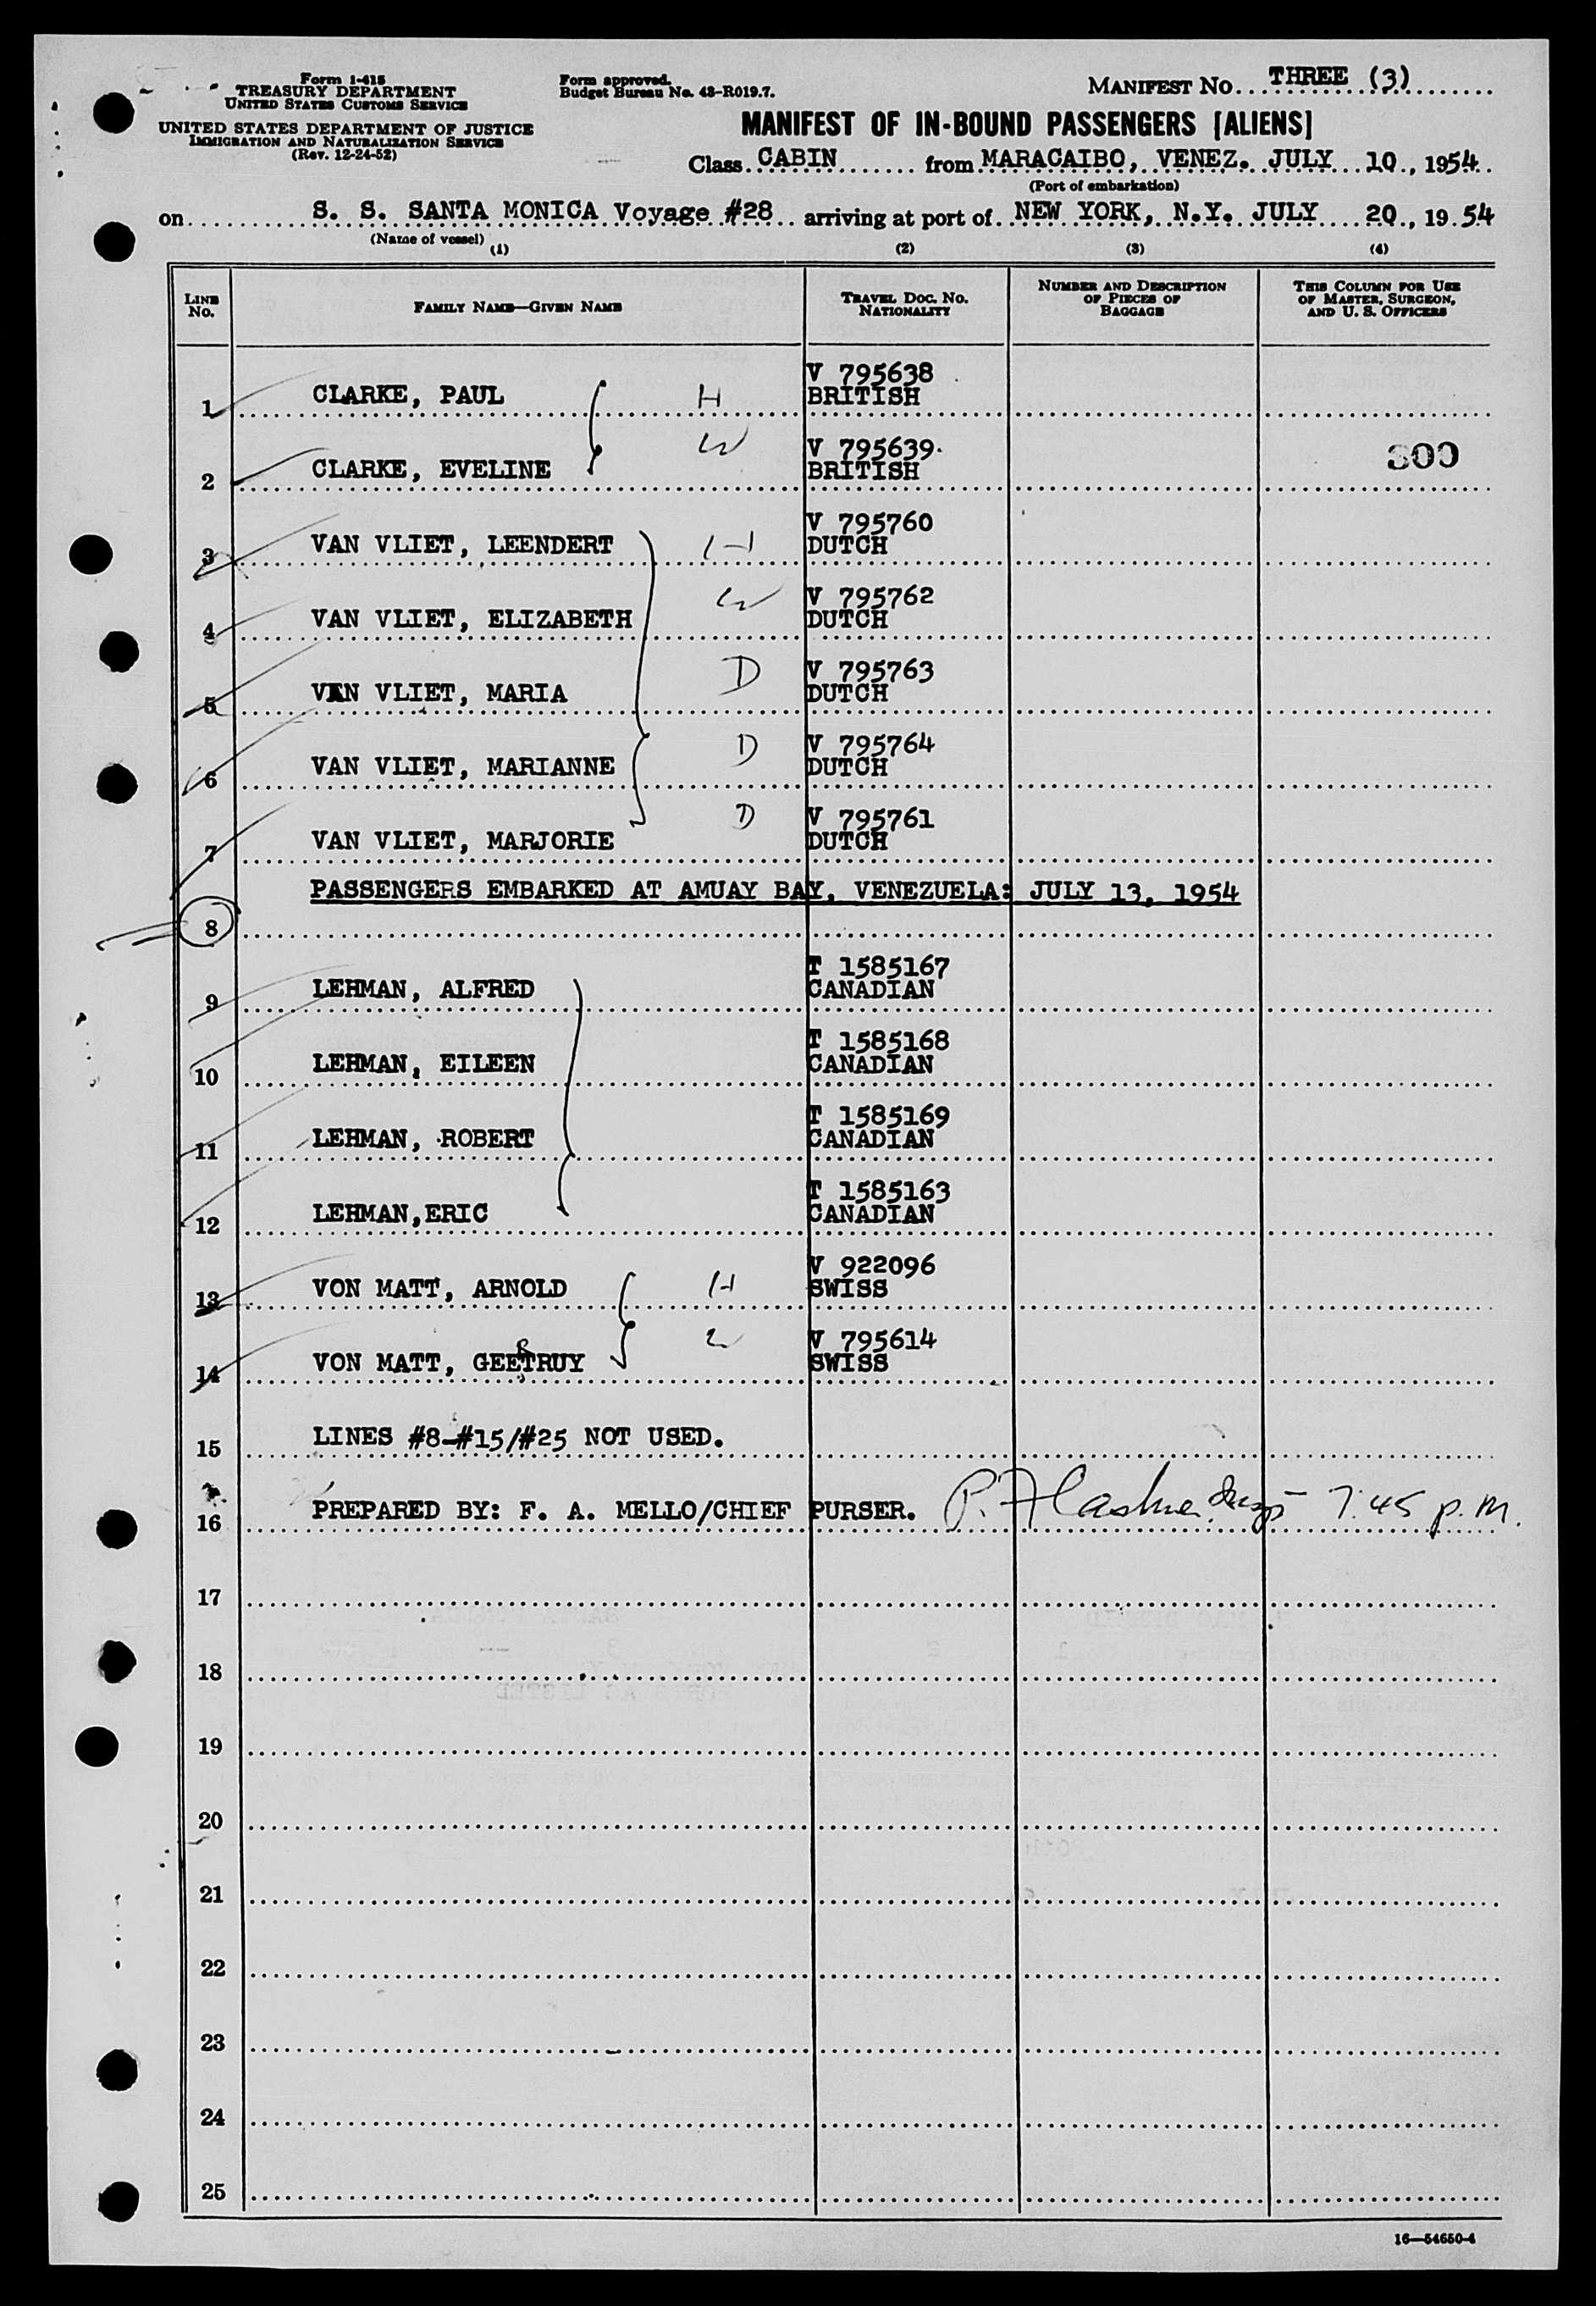 Form I-418
TREASURY DEPARTMENT
UNITED STATES CUSTOMS SERVICE
UNITED STATES DEPARTMENT OF JUSTICE
IMMIGRATION AND NATURALIZATION SERVICE
(Rev. 12-24-52)
Form approved.
Budget Bureau No. 43-R019.7.
MANIFEST NO. THREE (3)
MANIFEST OF IN-BOUND PASSENGERS [ALIENS]
Class CABIN from MARACAIBO, VENEZ. JULY 10, 1954
(Port of embarkation)
on S. S. SANTA MONICA Voyage #28 arriving at port of NEW YORK, N.Y. JULY 20, 1954
(Name of vessel) (1) (2) (3) (4)
LINE NO. FAMILY NAME—GIVEN NAME TRAVEL DOC. NO. NATIONALITY NUMBER AND DESCRIPTION OF PIECES OF BAGGAGE THIS COLUMN FOR USE OF MASTER, SURGEON, AND U. S. OFFICERS
1 CLARKE, PAUL H V 795638 BRITISH
2 CLARKE, EVELINE W V 795639 BRITISH 300
3 VAN VLIET, LEENDERT H V 795760 DUTCH
4 VAN VLIET, ELIZABETH W V 795762 DUTCH
5 VAN VLIET, MARIA D V 795763 DUTCH
6 VAN VLIET, MARIANNE D V 795764 DUTCH
7 VAN VLIET, MARJORIE D V 795761 DUTCH
PASSENGERS EMBARKED AT AMUAY BAY, VENEZUELA: JULY 13, 1954
8
9 LEHMAN, ALFRED T 1585167 CANADIAN
10 LEHMAN, EILEEN T 1585168 CANADIAN
11 LEHMAN, ROBERT T 1585169 CANADIAN
12 LEHMAN,ERIC T 1585163 CANADIAN
13 VON MATT, ARNOLD H V 922096 SWISS
14 VON MATT, GEETRUY W V 795614 SWISS
15 LINES #8-#15/#25 NOT USED.
16 PREPARED BY: F. A. MELLO/CHIEF PURSER. 7:45 p.m.
17
18
19
20
21
22
23
24
25
16—54650-4